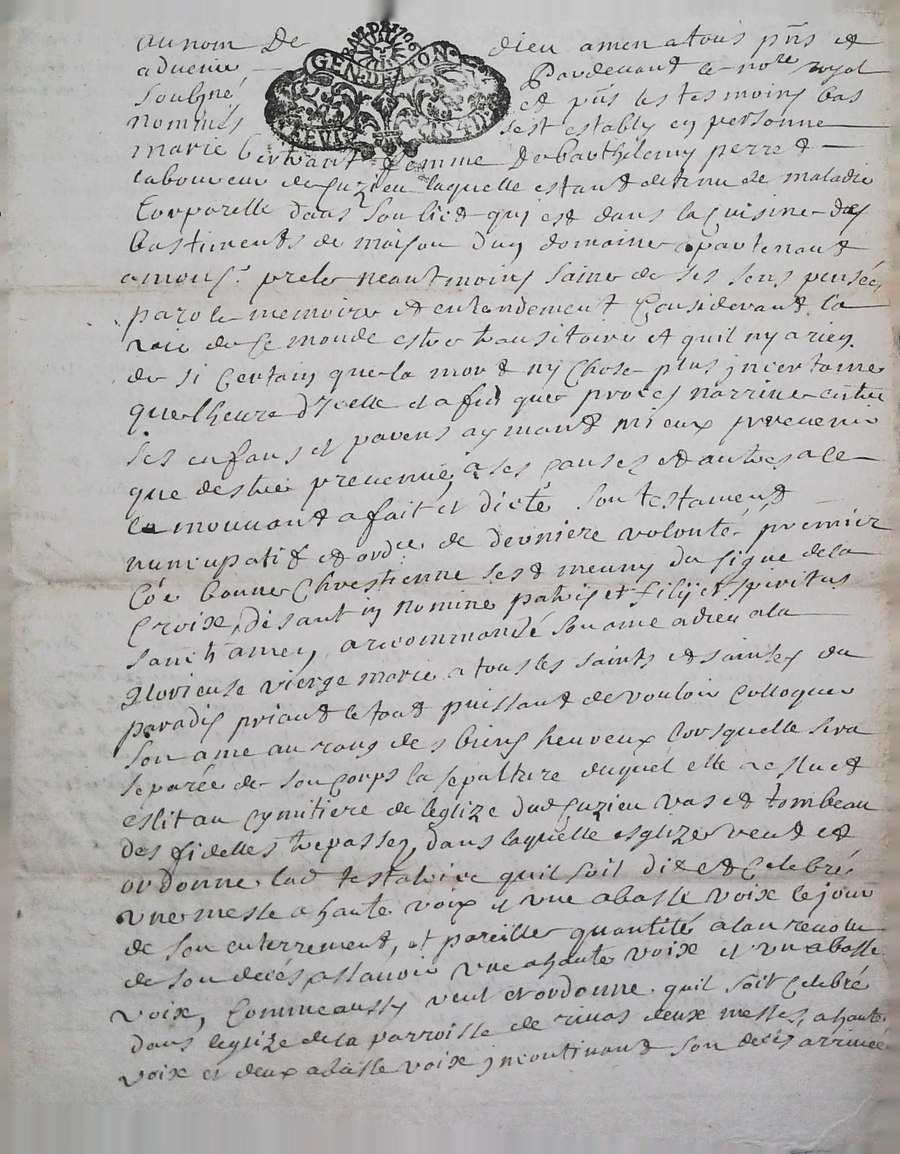 au nom De dieu amen a tous pñs et
GEN. DE LION
advenir Pardevant le nore royal
soubzné et pñs les tesmoins bas
nommés s'est establye en personne
marie bertrant femme De barthelemy perret
laboureur de Cuzieu laquelle estant detenue de maladie
Corporelle dans son lict qui est dans la Cuisine des
bastiments de maison d'un domaine apartenant
a monsr. neantmoins saine de ses sens pensée,
parole memoire et entendement Considerant la
vie de Ce monde estre transitoire et quil ny a rien
de si Certain que la mort ny Chose plus jncertaine
que lheure d'Icelle et afin que proces narrive entre
ses enfans et parens aymant mieux prevenir
que destre prevenue, a ses Causes et autres a ce
la mouvant a fait et dicté son testament
nuncupatif et ordre de derniere volonté, premier
Coe bonne Chrestienne sest meuny du signe de la
Croix, disant in nomine patris et filij et spiritus
sancti amen, a recommandé son ame a dieu a la
glorieuse vierge marie a tous les saints et saintes du
paradis priant le tout puissant de vouloir Colloquer
son ame au rang des biens heureux lorsquelle sera
separée de son Corps la sepulture duquel elle a esluet
eslit au Cymitiere de leglize dud Cuzieu vas et tombeau
des fidelles trepassez, dans laquelle esglize veut et
ordonne lad testatrice quil soit dixt et Celebré
une messe a haute voix et une a basse voix le jour
de son enterrement, et pareille quantité a lan revolu
de son decés assavoir une a haute voix et une a basse
voix, Comme aussy veut et ordonne quil soit Celebré
dans leglize de la parroisse de rivas deux messes, a haute
voix et deux a basse voix jncontinant son decés arrivée